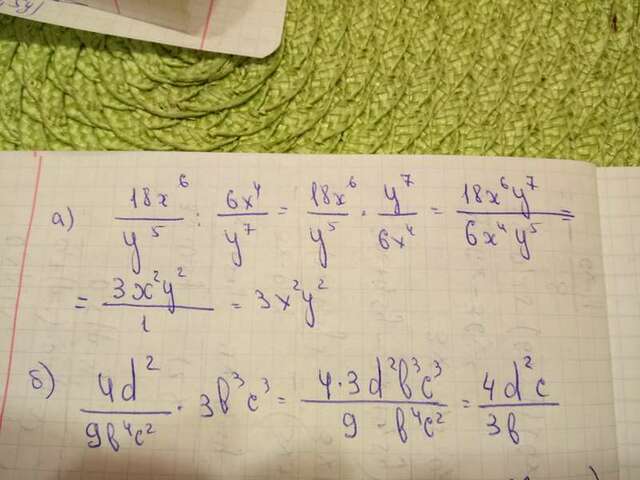 а) 18x⁶/y⁵ : 6x⁴/y⁷ = 18x⁶/y⁵ · y⁷/6x⁴ = 18x⁶y⁷/6x⁴y⁵ =
= 3x²y²/1 = 3x²y²
б) 4d²/9b⁴c² · 3b³c³ = 4·3d²b³c³/9 - b⁴c² = 4d²c/3b